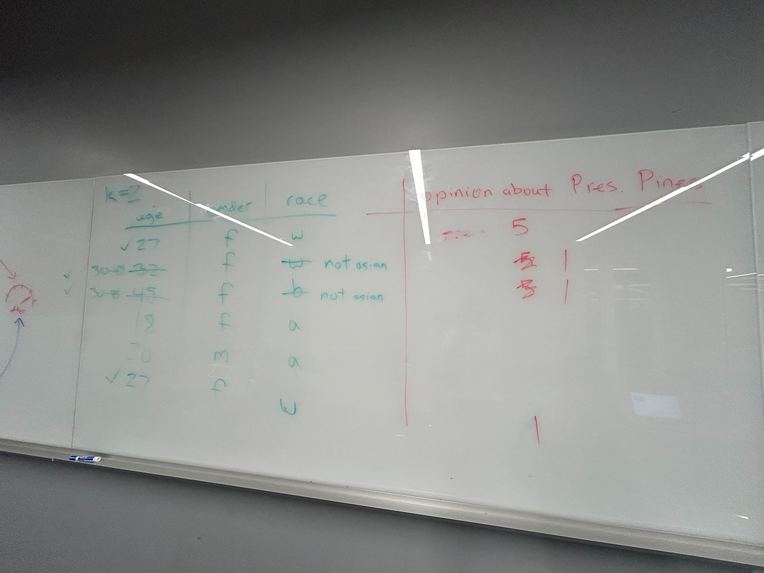 k=2
age gender race opinion about Pres. Pines
✓ 27 f w 5
✓ f not asian 1
✓ f not asian 1
18 f a
20 m a
✓ 27 f w 1